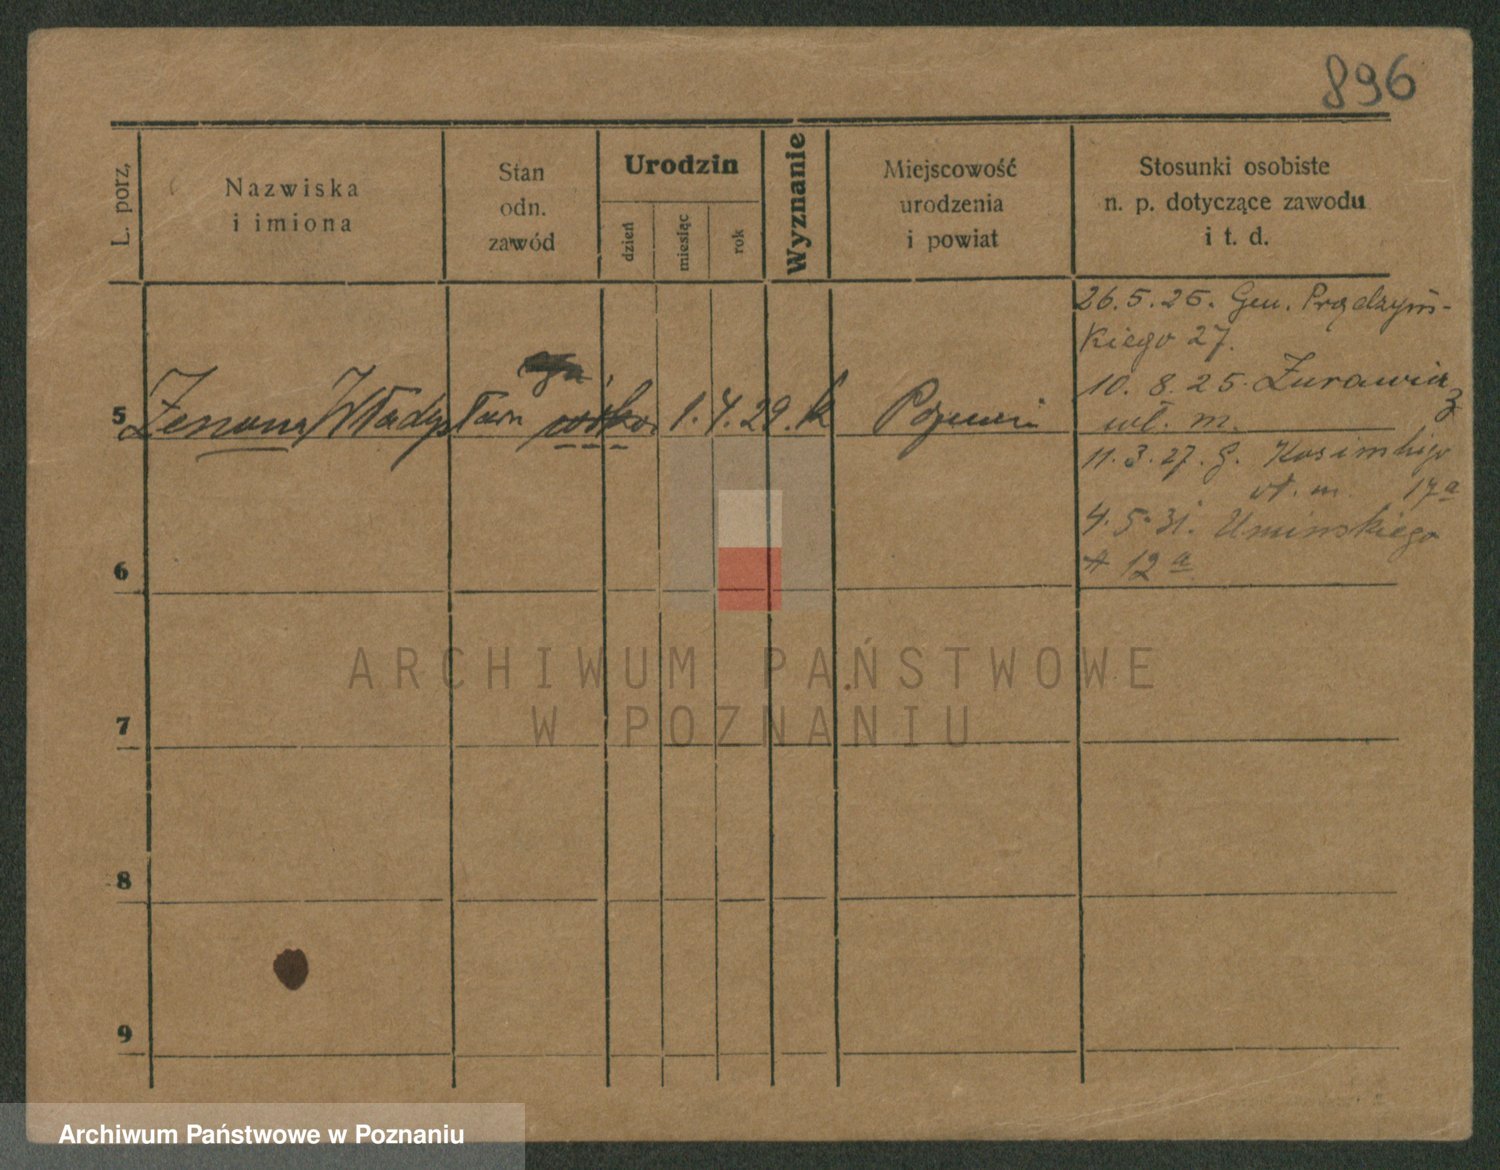 896
L. porz,
Nazwiska
i imiona
Stan
odn.
zawód
Urodzin
dzień
miesiąc
rok
Wyznanie
Miejscowość
urodzenia
i powiat
Stosunki osobiste
n. p. dotyczące zawodu
i t. d.
5 Zenona Władysława córka 1. 4. 29. k Poznań
26. 5. 25. Gen. Prądzyń-
kiego 27.
10. 8. 25. Żurawia 3
wł. m.
11. 3. 27. G. Kosińskiego
wł. m. 17a
4. 5. 31. Umińskiego
12a
6
7
8
9
ARCHIWUM PAŃSTWOWE
W POZNANIU
Archiwum Państwowe w Poznaniu